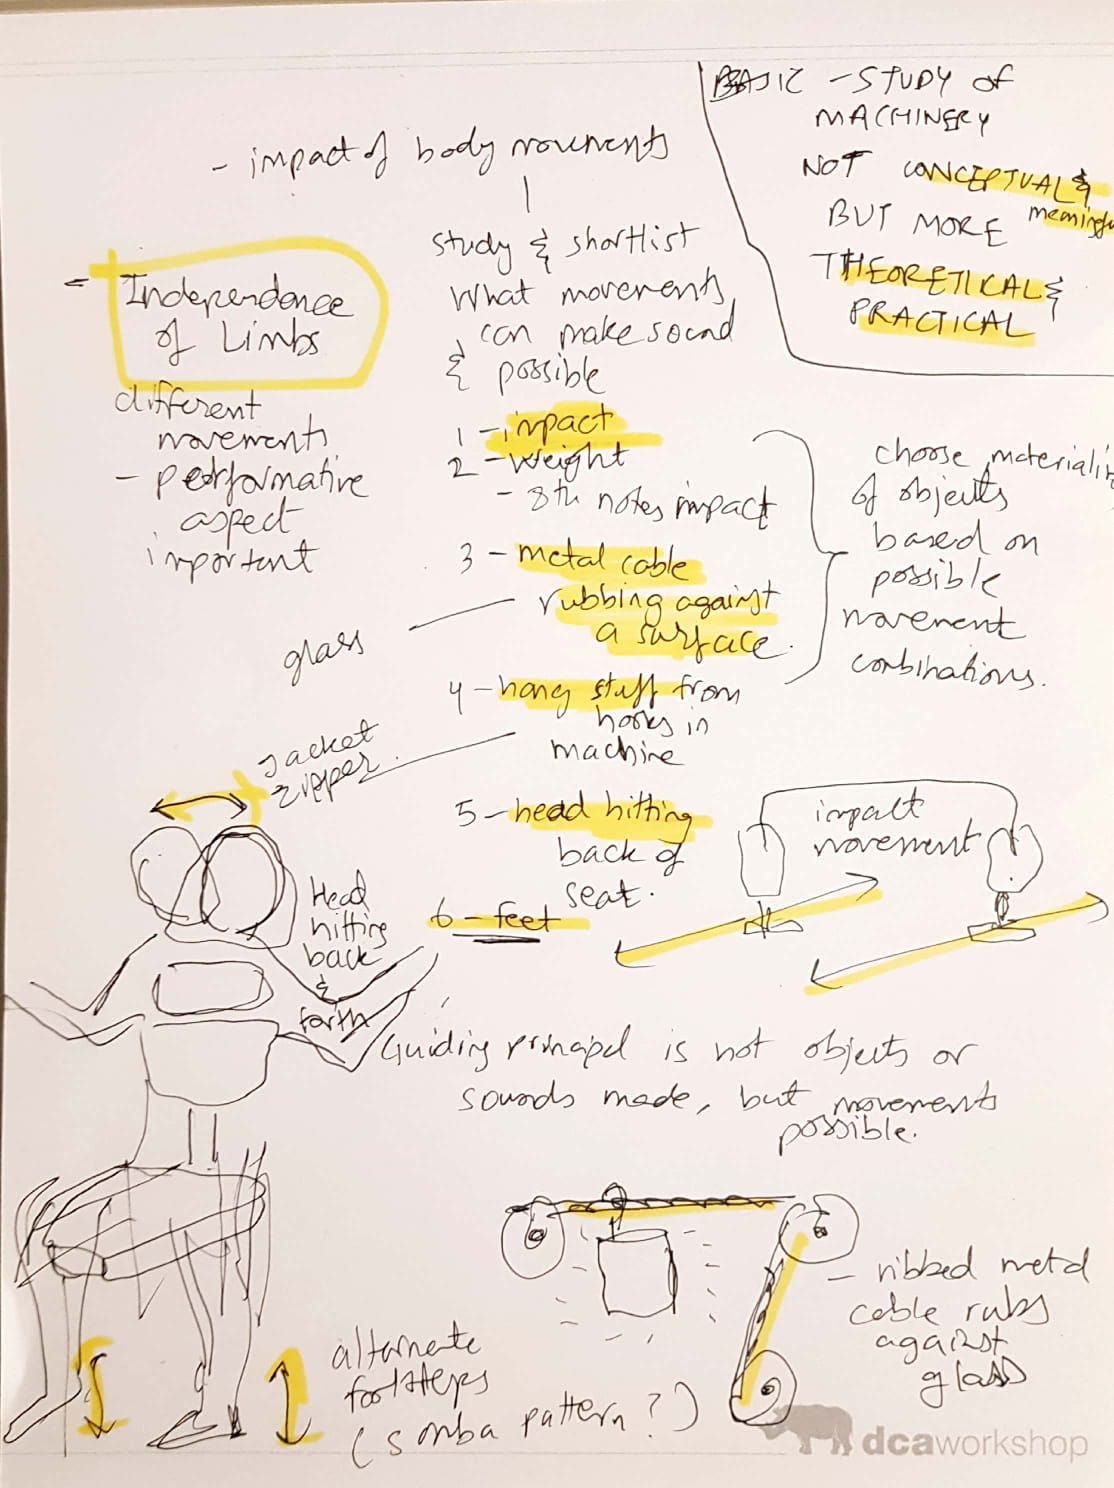 BASIC - STUDY OF
MACHINERY
NOT CONCEPTUAL &
meaningfu
BUT MORE
THEORETICAL &
PRACTICAL
- impact of body movements
study & shortlist
What movements
can make sound
& possible
- Independence
of Limbs
different
movements
- performative
aspect
important
1 - impact
2 - weight
- 8th notes impact
3 - metal cable
rubbing against
a surface.
glass
4 - hang stuff from
hooks in
machine
jacket
zipper.
5 - head hitting
back of
seat.
6 - feet
choose materialit
of objects
based on
possible
movement
combinations.
impact
movement
Head
hitting
back
&
forth
Guiding principel is not objects or
sounds made, but movements
possible.
- ribbed metal
cable rubs
against
glass
alternate
footsteps
(samba pattern?)
dcaworkshop